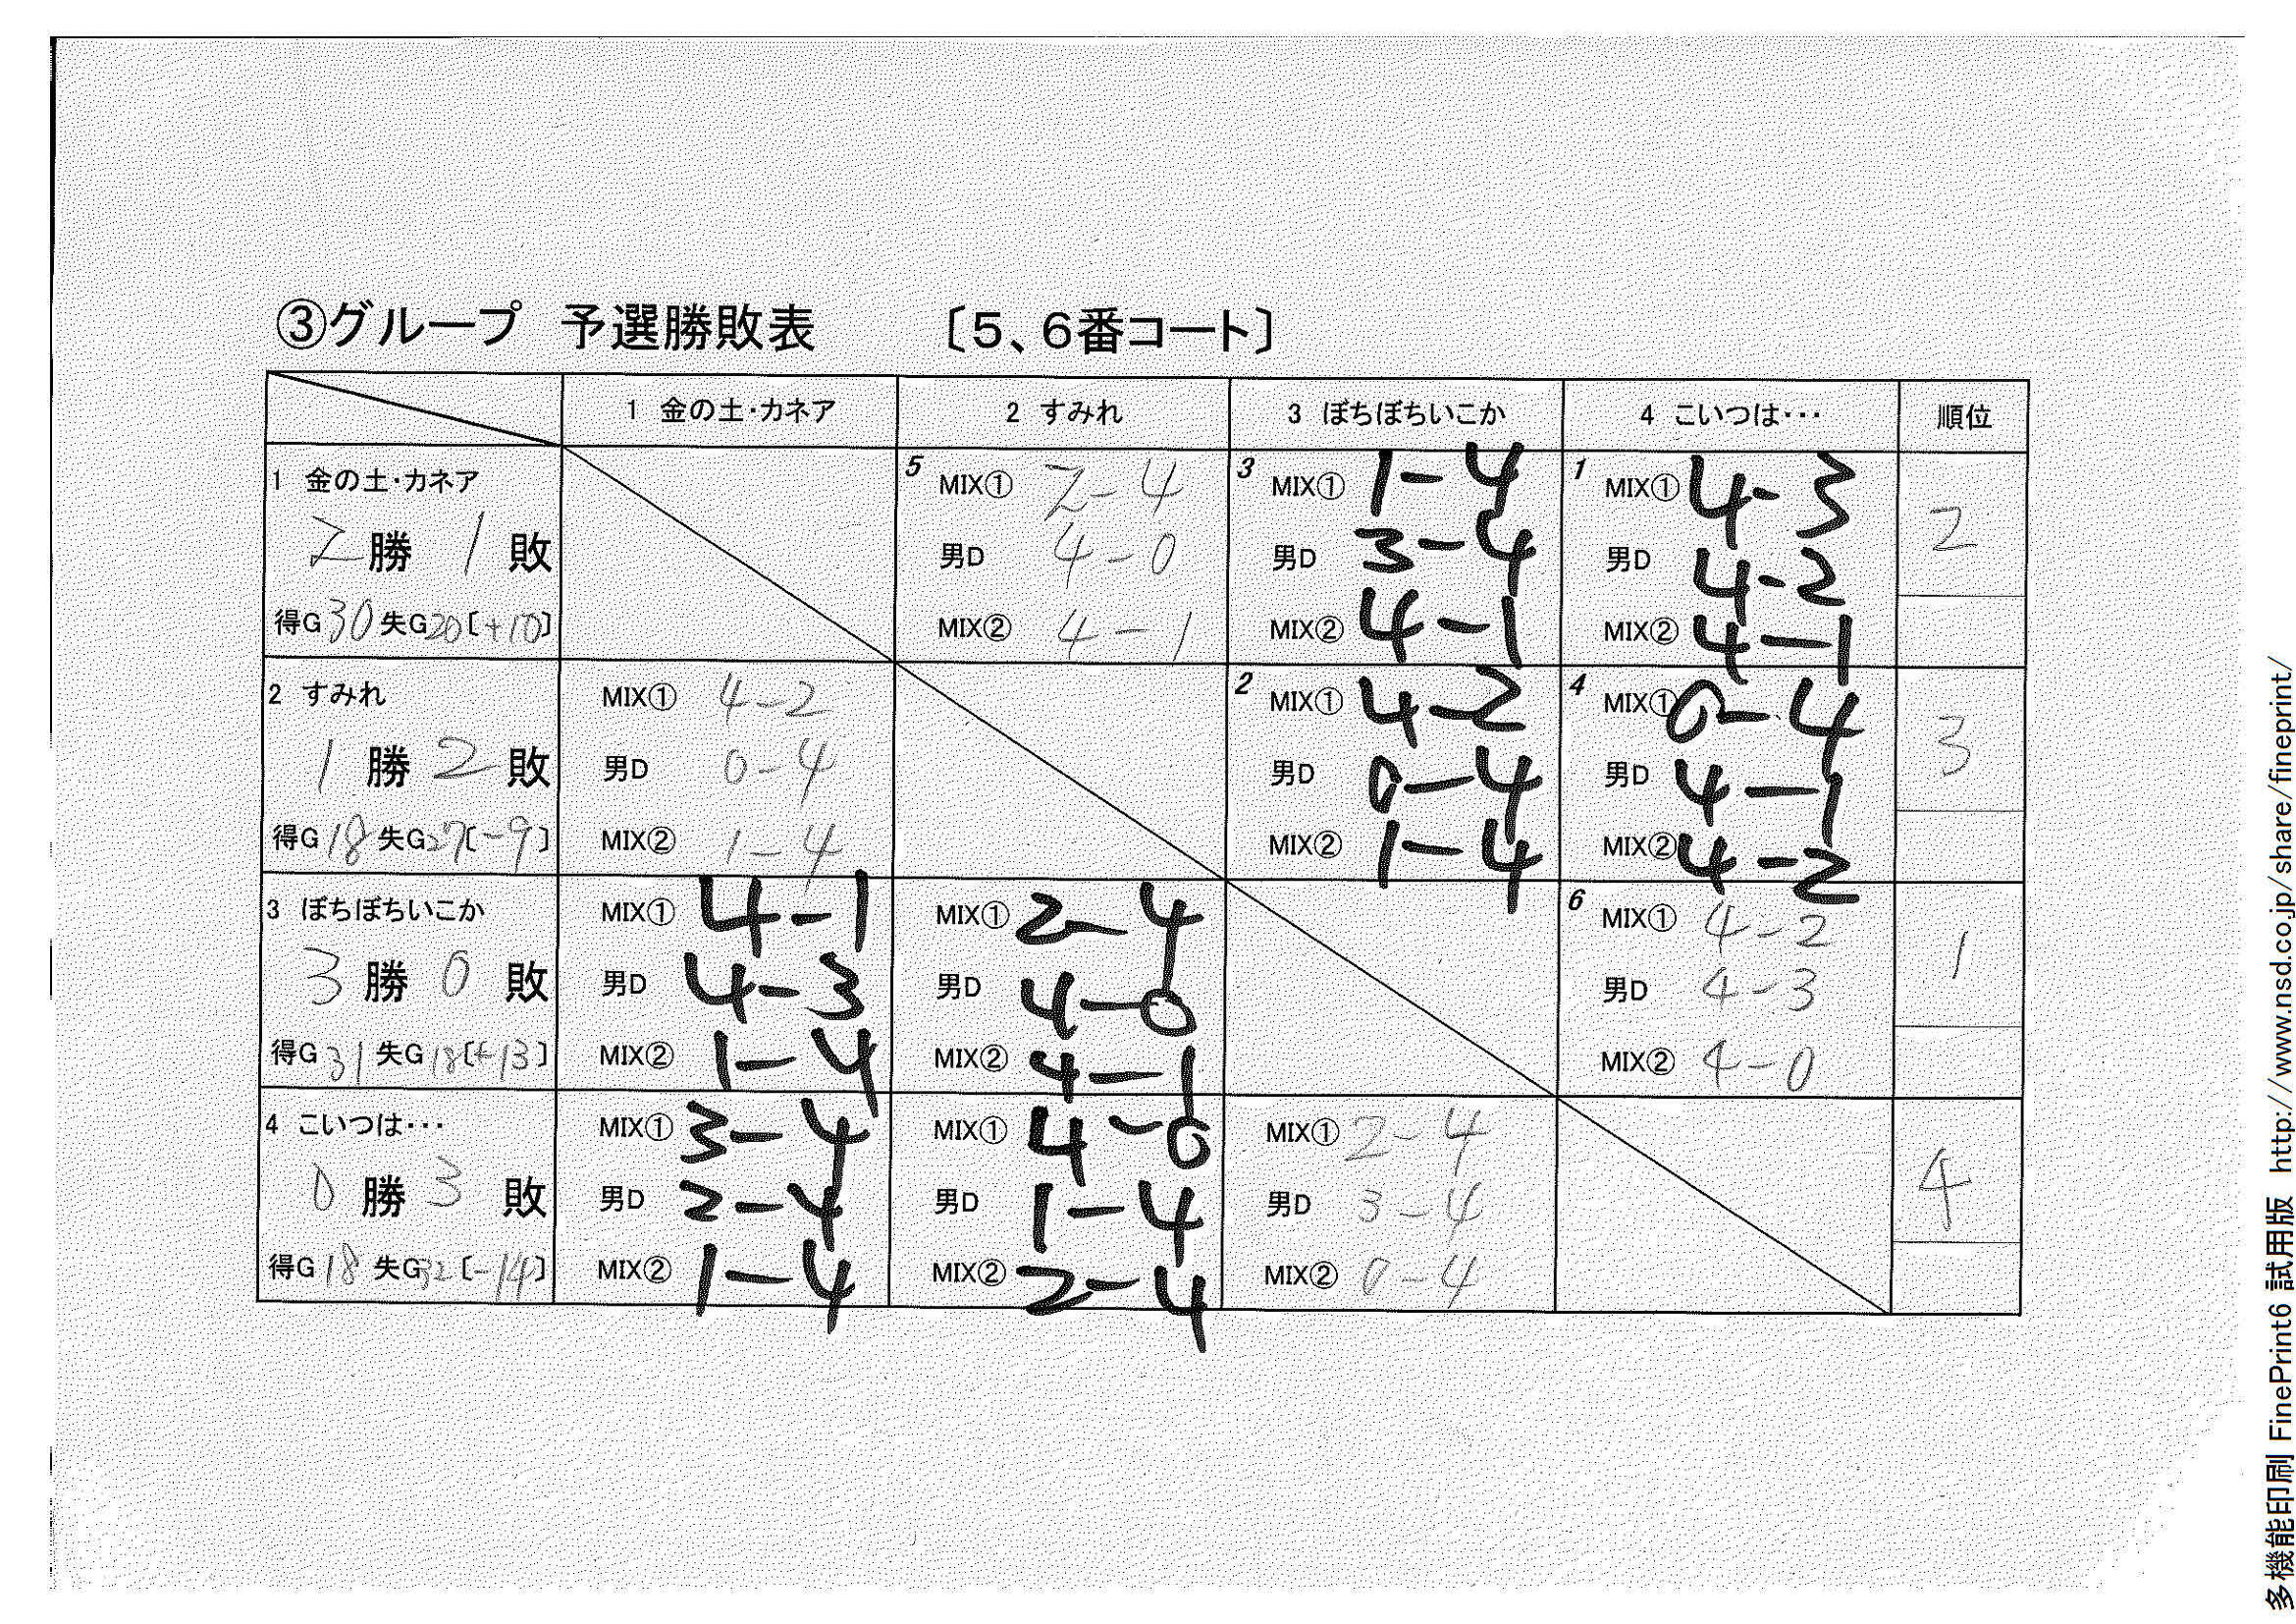 ③グループ 予選勝敗表 〔5、6番コート〕
1 金の土・カネア 2 すみれ 3 ぼちぼちいこか 4 こいつは・・・ 順位
1 金の土・カネア
2勝 1敗
得G30 失G20〔+10〕
5
MIX① 2-4
男D 4-0
MIX② 4-1
3
MIX① 1-4
男D 3-4
MIX② 4-1
1
MIX① 4-3
男D 4-2
MIX② 4-1
2
2 すみれ
1勝 2敗
得G18 失G27〔-9〕
MIX① 4-2
男D 0-4
MIX② 1-4
2
MIX① 4-2
男D 0-4
MIX② 1-4
4
MIX① 0-4
男D 4-1
MIX② 4-2
3
3 ぼちぼちいこか
3勝 0敗
得G31 失G18〔+13〕
MIX① 4-1
男D 4-3
MIX② 1-4
MIX① 2-4
男D 4-0
MIX② 4-1
6
MIX① 4-2
男D 4-3
MIX② 4-0
1
4 こいつは・・・
0勝 3敗
得G18 失G32〔-14〕
MIX① 3-4
男D 2-4
MIX② 1-4
MIX① 4-0
男D 1-4
MIX② 2-4
MIX① 2-4
男D 3-4
MIX② 0-4
4
多機能印刷 FinePrint6 試用版 http://www.nsd.co.jp/share/fineprint/